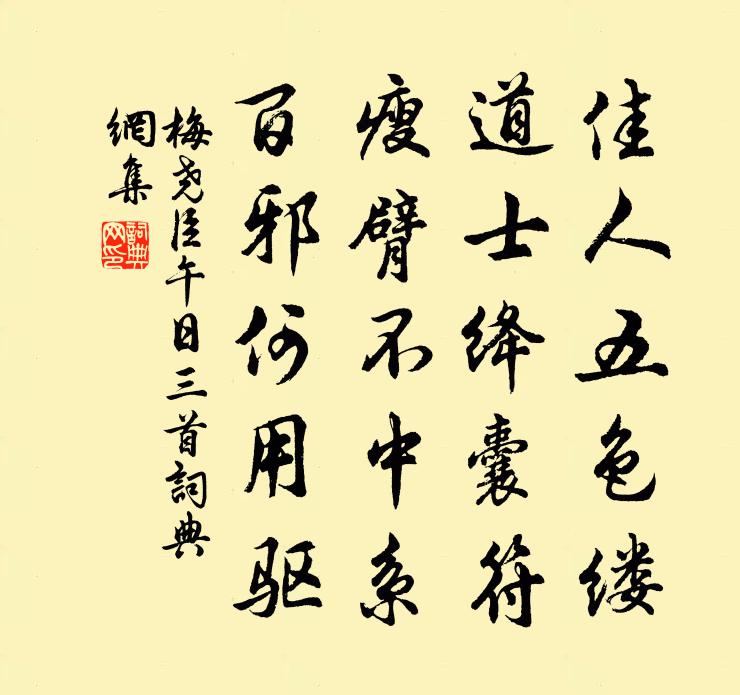 佳人五色缕
道士绛囊符
瘦臂不中系
百邪何用驱
梅尧臣午日三首詞典
網集
詞典
网印